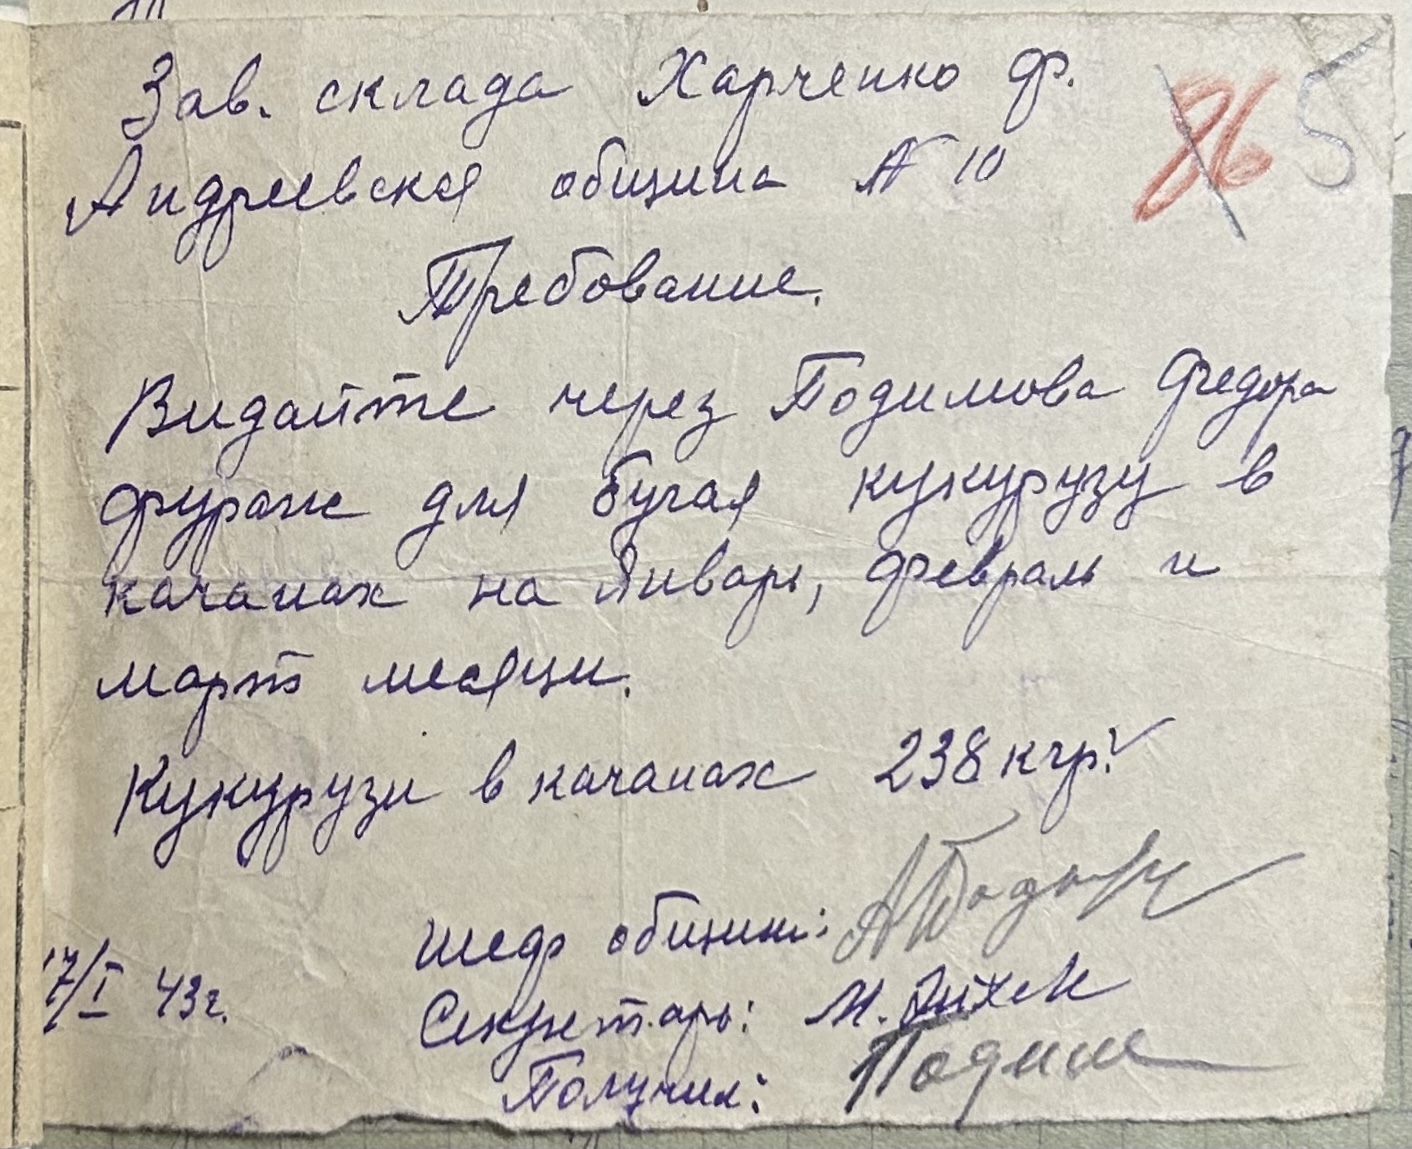 Зав. склада Харченко Ф.
86 5
Андреевская община № 10
Требование.
Видайте через Подимова Федора
фураж для бугая кукурузу в
качанах на Январь, февраль и
март месяци.
Кукурузи в качанах 238 кгр.
Шеф общини:
17/I 43г.
Секретарь: М.
Получил: Подим